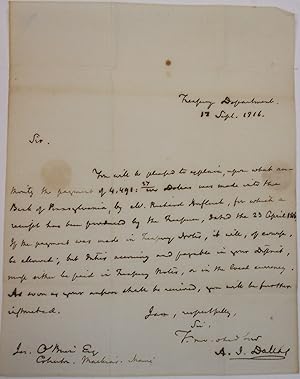 Treasury Department.
12 Sept. 1816.
Sir.
You will be pleased to explain, upon what au-
thority the payment of 4,491: 37 Dollars was made into the
Bank of Pennsylvania, by Mr. Richard, for which a
receipt has been produced by the Treasurer, dated the 23 April
If the payment was made in Treasury Notes, it will, of course,
be allowed; but Duties accruing and payable in your District,
must either be paid in Treasury Notes, or in the local currency.
As soon as your answer shall be received, you will be further
instructed.
I am, respectfully,
Sir,
Your obed serv
A. J. Dallas
Jer. O'Brien Esq
Collector. Machias. Maine